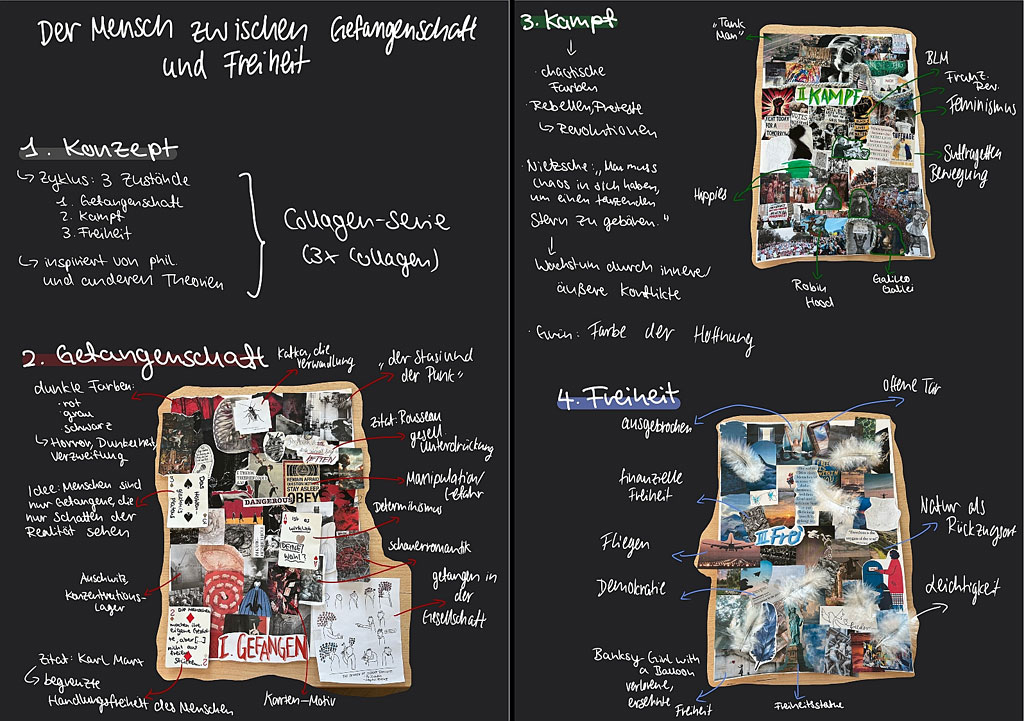 Der Mensch zwischen Gefangenschaft
und Freiheit
1. Konzept
↳ Zyklus: 3 Zustände
1. Gefangenschaft
2. Kampf
3. Freiheit
↳ inspiriert von phil.
und anderen Theorien
Collagen-Serie
(3x Collagen)
2. Gefangenschaft
dunkle Farben:
· rot
· grau
· schwarz
↳ Horror, Dunkelheit,
Verzweiflung
Idee: Menschen sind
nur Gefangene, die
nur Schatten der
Realität sehen
Auschwitz
Konzentrations-
Lager
Zitat: Karl Marx
↳ begrenzte
Handlungsfreiheit des Menschen
Kafka, die
Verwandlung
"der Stasi und
der Punk"
Zitat: Rousseau
gesell.
Unterdrückung
Manipulation/
Gefahr
Determinismus
Schauerromantik
gefangen in
der
Gesellschaft
Karten-Motiv
DANGEROUS
REMAIN AFRAID
STAY ASLEEP
OBEY
KETTEN
ist es
wirklich
DEINE
Wahl?
Die Menschen
machen ihre
eigene Geschich-
te, aber [...]
nicht aus
freien
Stücken
I. GEFANGEN
3. Kampf
· chaotische
Farben
· Rebellen, Proteste
↳ Revolutionen
· Nietzsche: „Man muss
chaos in sich haben,
um einen tanzenden
Stern zu gebären."
Wachstum durch innere/
äußere Konflikte
· Grün: Farbe der Hoffnung
„Tank
Man"
BLM
Franz.
Rev.
Feminismus
Suffragetten
Bewegung
Hippies
Robin
Hood
Galileo
Galilei
II KAMPF
FIGHT TODAY
FOR A
TOMORROW
4. Freiheit
ausgebrochen
offene Tür
finanzielle
Freiheit
Fliegen
Demokratie
Natur als
Rückzugsort
Leichtigkeit
Banksy-Girl with
a Balloon
verlorene,
ersehnte
Freiheit
Freiheitsstatue
III Frei